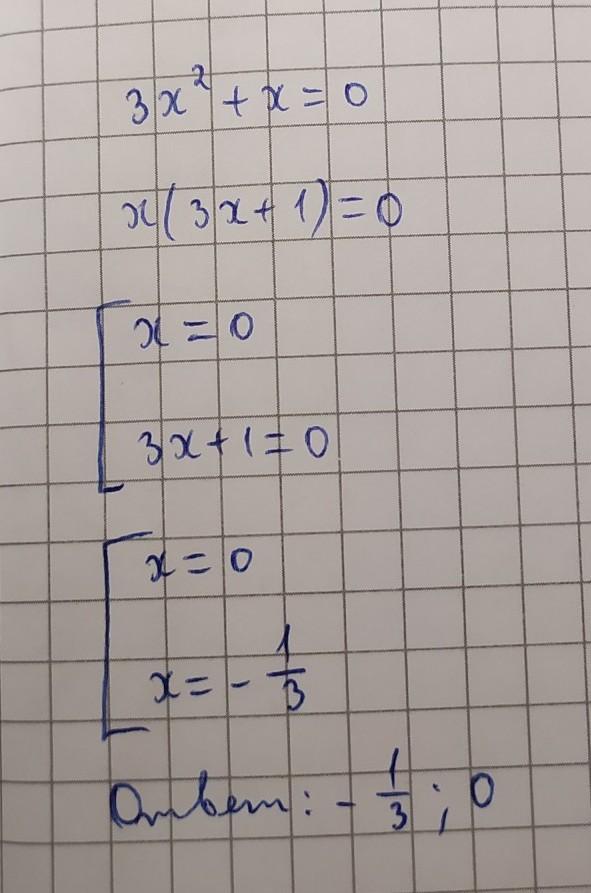 3x² + x = 0
x(3x + 1) = 0
x = 0
3x + 1 = 0
x = 0
x = - 1/3
Ответ: - 1/3 ; 0